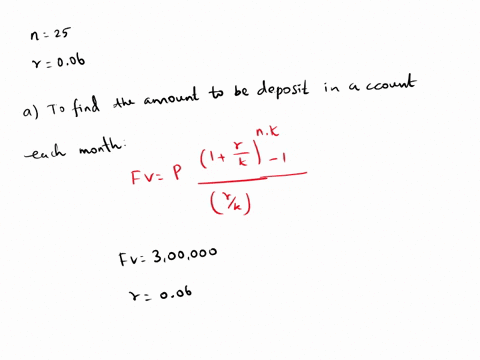 n = 25
r = 0.06
a) To find the amount to be deposit in account
each month:
FV = P \frac{(1 + \frac{r}{k})^{n.k} - 1}{(r/k)}
FV = 3,00,000
r = 0.06